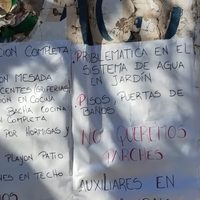 CION COMPLETA
ON MESADA
CENTES (GRIFERIAS
ON EN COCINA
BACHA COCINA
N COMPLETA
POR HORMIGAS)
PLAYON PATIO
NES EN TECHO
PROBLEMATICA EN EL
SISTEMA DE AGUA
EN JARDÍN
PISOS, PUERTAS DE
BAÑOS
NO QUEREMOS
PARCHES
AUXILIARES EN